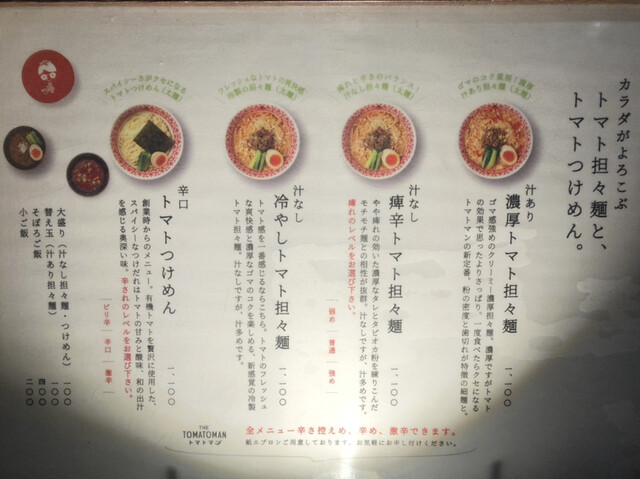 カラダがよろこぶ
トマト担々麺と、
トマトつけめん。
ゴマのコク濃厚!
汁あり担々麺(太麺)
汁あり
濃厚トマト担々麺
一、一〇〇
ゴマ感強めのクリーミー濃厚担々麺。濃厚ですがトマト
の効果で思ったよりさっぱり。一度食べたらクセになる
トマトマンの新定番。粉の密度と歯切れが特徴の細麺と。
痺れと辛さのバランス!
汁なし担々麺(太麺)
汁なし
痺辛トマト担々麺
一、一〇〇
やや痺れの効いた濃厚なタレとタピオカ粉を練りこんだ
モチモチ麺との相性が抜群。汁なしですが、汁多めです。
痺れのレベルをお選び下さい。
弱め|普通|強め
フレッシュなトマトの爽快感
冷製の担々麺(太麺)
汁なし
冷やしトマト担々麺
一、一〇〇
トマト感を一番感じるならこちら。トマトのフレッシュ
な爽快感と濃厚なゴマのコクを楽しめる、新感覚の冷製
トマト担々麺。汁なしですが、汁多めです。
スパイシーさがクセになる
トマトつけめん(太麺)
辛口
トマトつけめん
一、一〇〇
創業時からのメニュー。有機トマトを贅沢に使用した、
スパイシーなつけだれはトマトの甘みと酸味、和の出汁
を感じる奥深い味。辛さのレベルをお選び下さい。
ピリ辛|辛口|激辛
大盛り(汁なし担々麺・つけめん)一〇〇
替え玉(汁あり担々麺)一〇〇
そぼろご飯 四〇〇
小ご飯 二〇〇
THE
TOMATOMAN
トマトマン
全メニュー辛さ控えめ、辛め、激辛できます。
紙エプロンご用意しております。お気軽にお申し付けください。